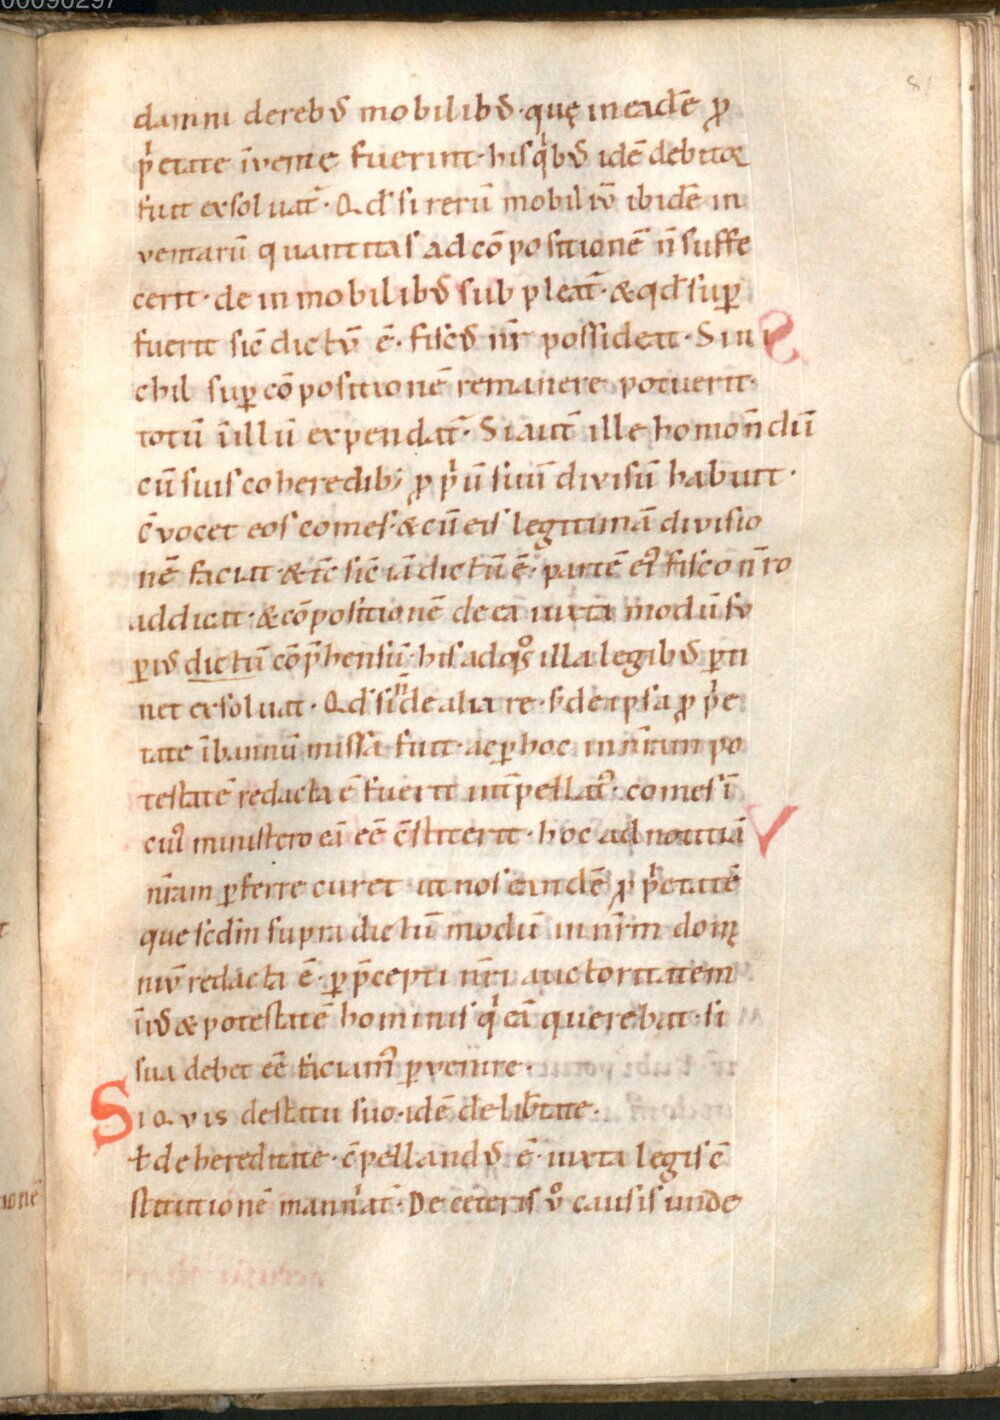 00090297
81
damni derebꝰ mobilibꝰ · quę ineadē ꝓ
p̍etate īventę fuerint · hisq̍bꝰ idē debitoꝝ
fuit exsoluat᷒ · Qd̄ si rerū mobiliū ibidē in
ventarū quantitas ad cōpositionē n̄ suffe
cerit · de inmobilibꝰ subpleat᷒ · & qd̄ suꝑ
fuerit sic̄ dictū ē · fiscꝰ nr̄ possideat · Si ni
chil suꝑ cōpositionē remanere potuerit ·
totū īillū expendat᷒ · Si aut̄ ille homo n̄dū
cū suis coheredibꝫ ꝓp̍ū suū divisū habuit ·
c̄vocet eos comes · & cū eis legitimā divisio
nē faciat · & tc̄ sic̄ iā dictū ē · partē eiꝰ fisco n̄ro
addicat · & cōpositionē de ea iuxta modū su
ꝑiꝰ dictū cōp̄hensū · his adq̊s illa legibꝰ ꝑti
net exsoluat · Qd̄ si n̄ de alia re · s; de ipsa ꝓp̍e
tate ībannū missa fuit · ac ꝑ hoc in nr̄am po
testatē redacta ē fuerit int̄pellatꝰ · comes ī
cuiꝰ ministero eā eē c̄stiterit · hoc ad notitiā
nr̄am ꝑferre curet ut nos eandē ꝓp̍etatē
que scdm̄ supra dictū modū in nr̄m domi
niū redacta ē · ꝑ p̄cepti nr̄i auctoritatem
īiꝰ & potestatē hominis q̍ eā querebat · si
sua debet eē faciamꝰ ꝑvenire ·
Si Qvis de statu suo · idē de lib̄tate ·
ł de hereditate · c̄pellandꝰ ē · iuxta legis c̄
stitutionē mannīat᷒ · De ceteris v̊ causis unde